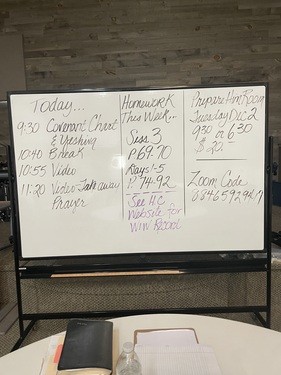 Today...
9:30 Covenant Chart
&
10:40 Break
10:55 Video
11:20 Video Takeaway
Prayer
Homework
This Week...
Sess 3
P 69-70
Days 1-5
P. 74-92
See HC
Website for
WW Record
Prepare Him Room
Tuesday Dec 2
9:30 or 6:30
$20
Zoom Code